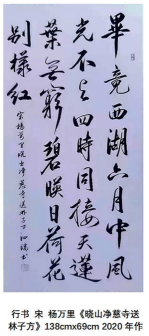 畢竟西湖六月中風
光不与四時同接天蓮
葉無窮碧暎日荷花
别樣紅
宋楊万里晓出净慈寺送林子方
行书 宋 杨万里《晓山净慈寺送
林子方》138cmx69cm 2020 年作